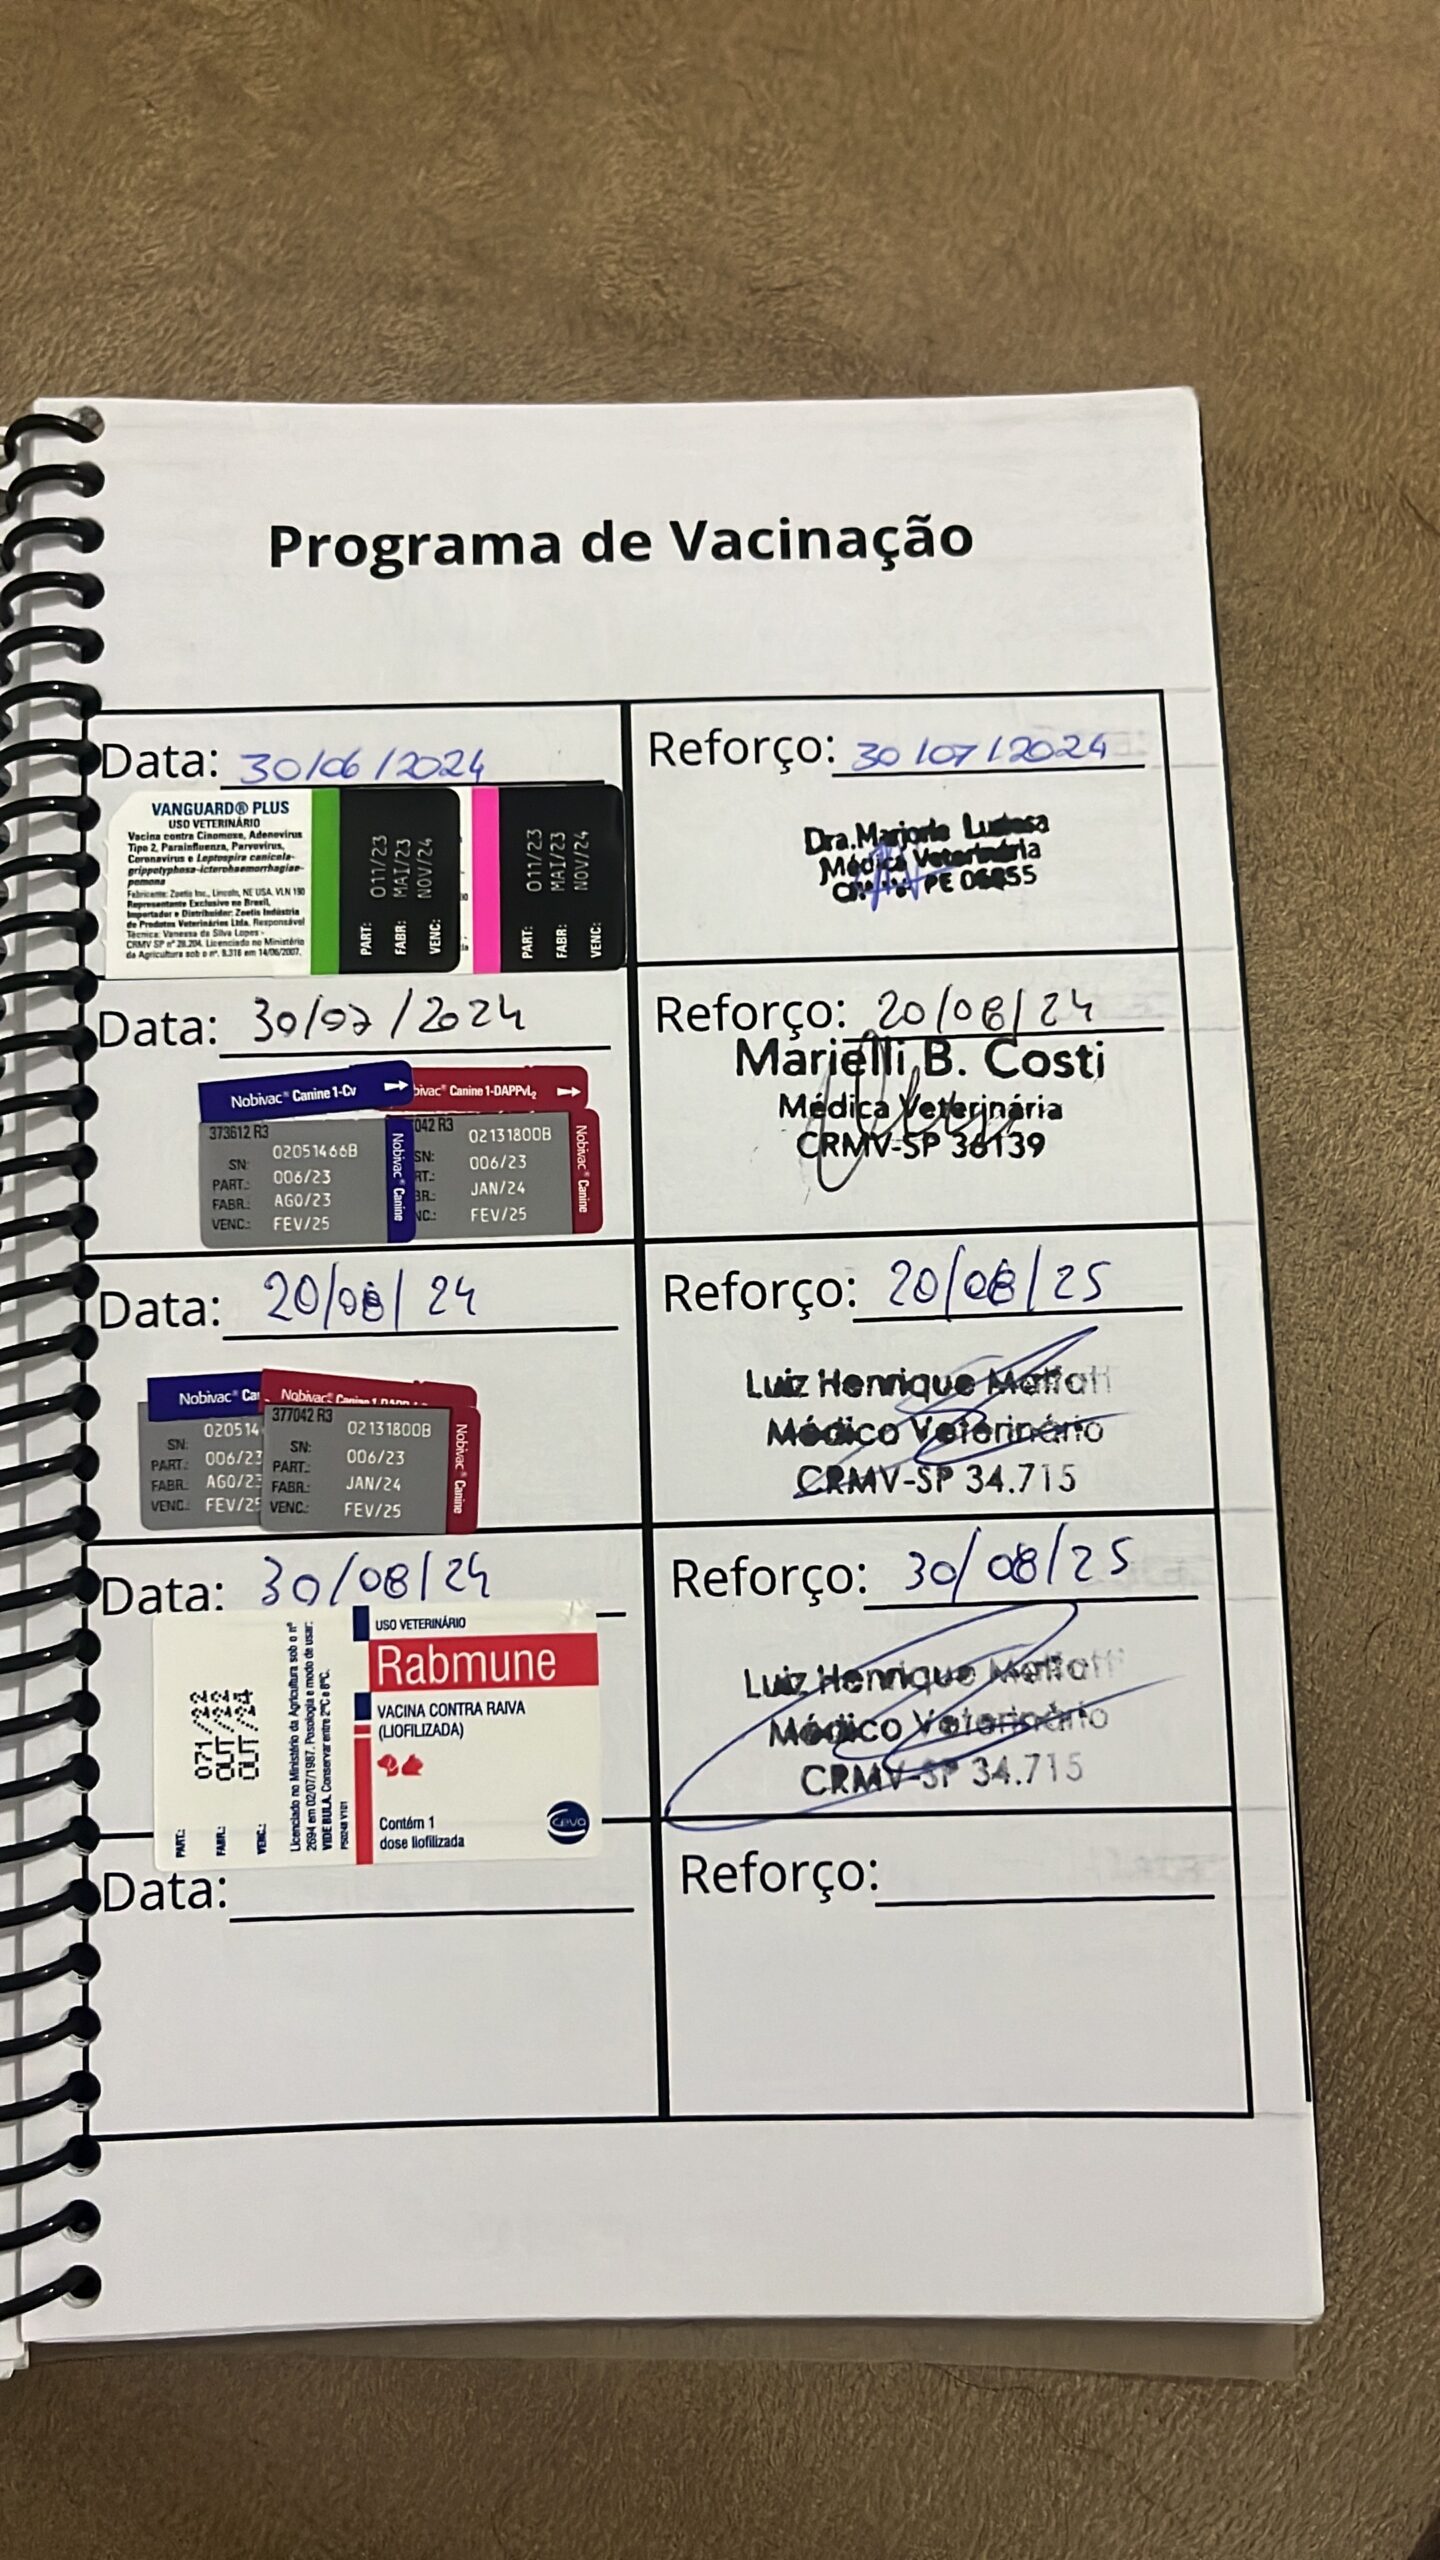 Programa de Vacinação
Data: 30/06/2024
Reforço: 30/07/2024
VANGUARD® PLUS
USO VETERINÁRIO
Vacina contra Cinomose, Adenovírus
Tipo 2, Parainfluenza, Parvovírus,
Coronavírus e Leptospira canicola-
grippotyphosa-icterohaemorrhagiae-
pomona
Fabricante: Zoetis Inc., Lincoln, NE USA. VLN 190
Representante Exclusivo no Brasil,
Importador e Distribuidor: Zoetis Indústria
de Produtos Veterinários Ltda. Responsável
Técnica: Vanessa da Silva Lopes -
CRMV SP nº 28.204. Licenciado no Ministério
da Agricultura sob o nº. 8.316 em 14/06/2007.
PART: 011/23
FABR: MAI/23
VENC: NOV/24
PART: 011/23
FABR: MAI/23
VENC: NOV/24
Dra. Marjorie
Médica Veterinária
PE
Data: 30/07/2024
Reforço: 20/08/24
Nobivac® Canine 1-Cv
373612 R3
SN: 02051466B
PART.: 006/23
FABR.: AGO/23
VENC.: FEV/25
Nobivac® Canine
bivac® Canine 1-DAPPvL2
042 R3
SN: 02131800B
RT.: 006/23
BR.: JAN/24
NC.: FEV/25
Nobivac® Canine
Marielli B. Costi
Médica Veterinária
CRMV-SP 36139
Data: 20/08/24
Reforço: 20/08/25
Nobivac® Ca
SN: 020514
PART.: 006/23
FABR.: AGO/23
VENC.: FEV/25
Nobivac® Canine
377042 R3
SN: 02131800B
PART.: 006/23
FABR.: JAN/24
VENC.: FEV/25
Nobivac® Canine
Luiz Henrique
Médico Veterinário
CRMV-SP 34.715
Data: 30/08/24
Reforço: 30/08/25
PART.: 071/22
FABR.: OUT/22
VENC.: OUT/24
Licenciado no Ministério da Agricultura sob o nº
2694 em 02/07/1987. Posologia e modo de usar:
VIDE BULA. Conservar entre 2ºC e 8ºC.
USO VETERINÁRIO
Rabmune
VACINA CONTRA RAIVA
(LIOFILIZADA)
Contém 1
dose liofilizada
Ceva
Luiz Henrique
Médico Veterinário
CRMV-SP 34.715
Data:
Reforço: